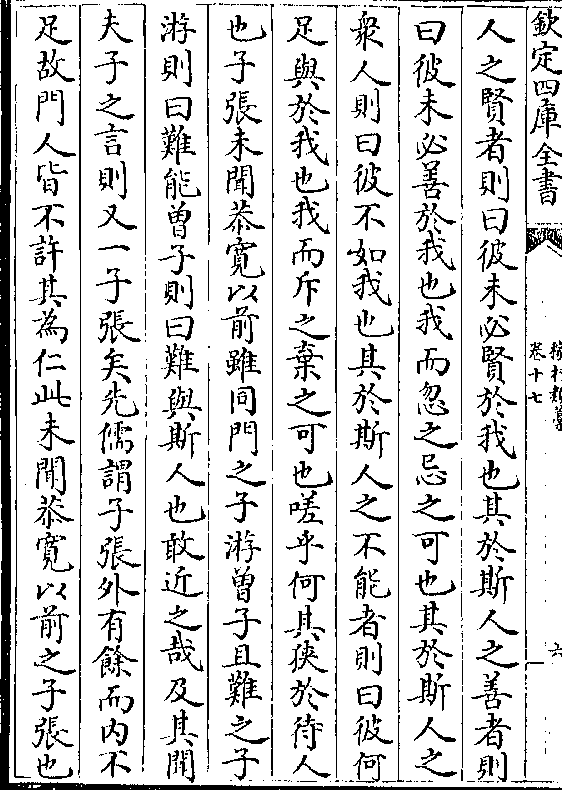 欽定四庫全書
卷十七
六
人之賢者則曰彼未必賢於我也其於斯人之善者則
曰彼未必善於我也我而忽之忌之可也其於斯人之
衆人則曰彼不如我也其於斯人之不能者則曰彼何
足與於我也我而斥之棄之可也嗟乎何其狹於待人
也子張未聞恭寛以前雖同門之子游曾子且難之子
游則曰難能曾子則曰難與斯人也敢近之哉及其聞
夫子之言則又一子張矣先儒謂子張外有餘而内不
足故門人皆不許其為仁此未聞恭寛以前之子張也